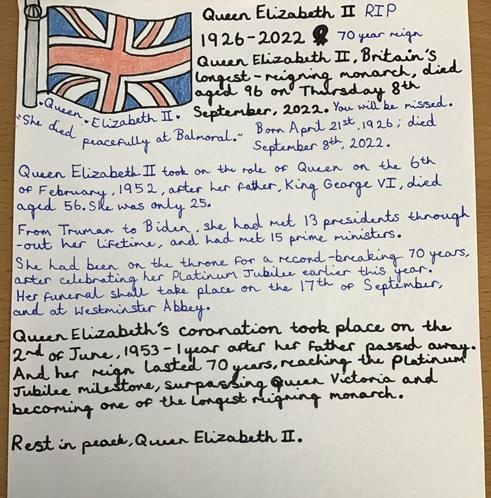 Queen Elizabeth II RIP
1926-2022 70 year reign
Queen Elizabeth II, Britain's
longest-reigning monarch, died
aged 96 on Thursday 8th
September, 2022. You will be missed.
• Queen • Elizabeth II •
"She died peacefully at Balmoral."
Born April 21st, 1926; died
September 8th, 2022.
Queen Elizabeth II took on the role of Queen on the 6th
of February, 1952, after her father, King George VI, died
aged 56. She was only 25.
From Truman to Biden, she had met 13 presidents through
-out her lifetime, and had met 15 prime ministers.
She had been on the throne for a record-breaking 70 years,
after celebrating her Platinum Jubilee earlier this year.
Her funeral shall take place on the 17th of September,
and at Westminster Abbey.
Queen Elizabeth's coranation took place on the
2nd of June, 1953-1 year after her father passed away.
And her reign lasted 70 years, reaching the Platinum
Jubilee milestone, surpassing Queen Victoria and
becoming one of the longest reigning monarch.
Rest in peace, Queen Elizabeth II.